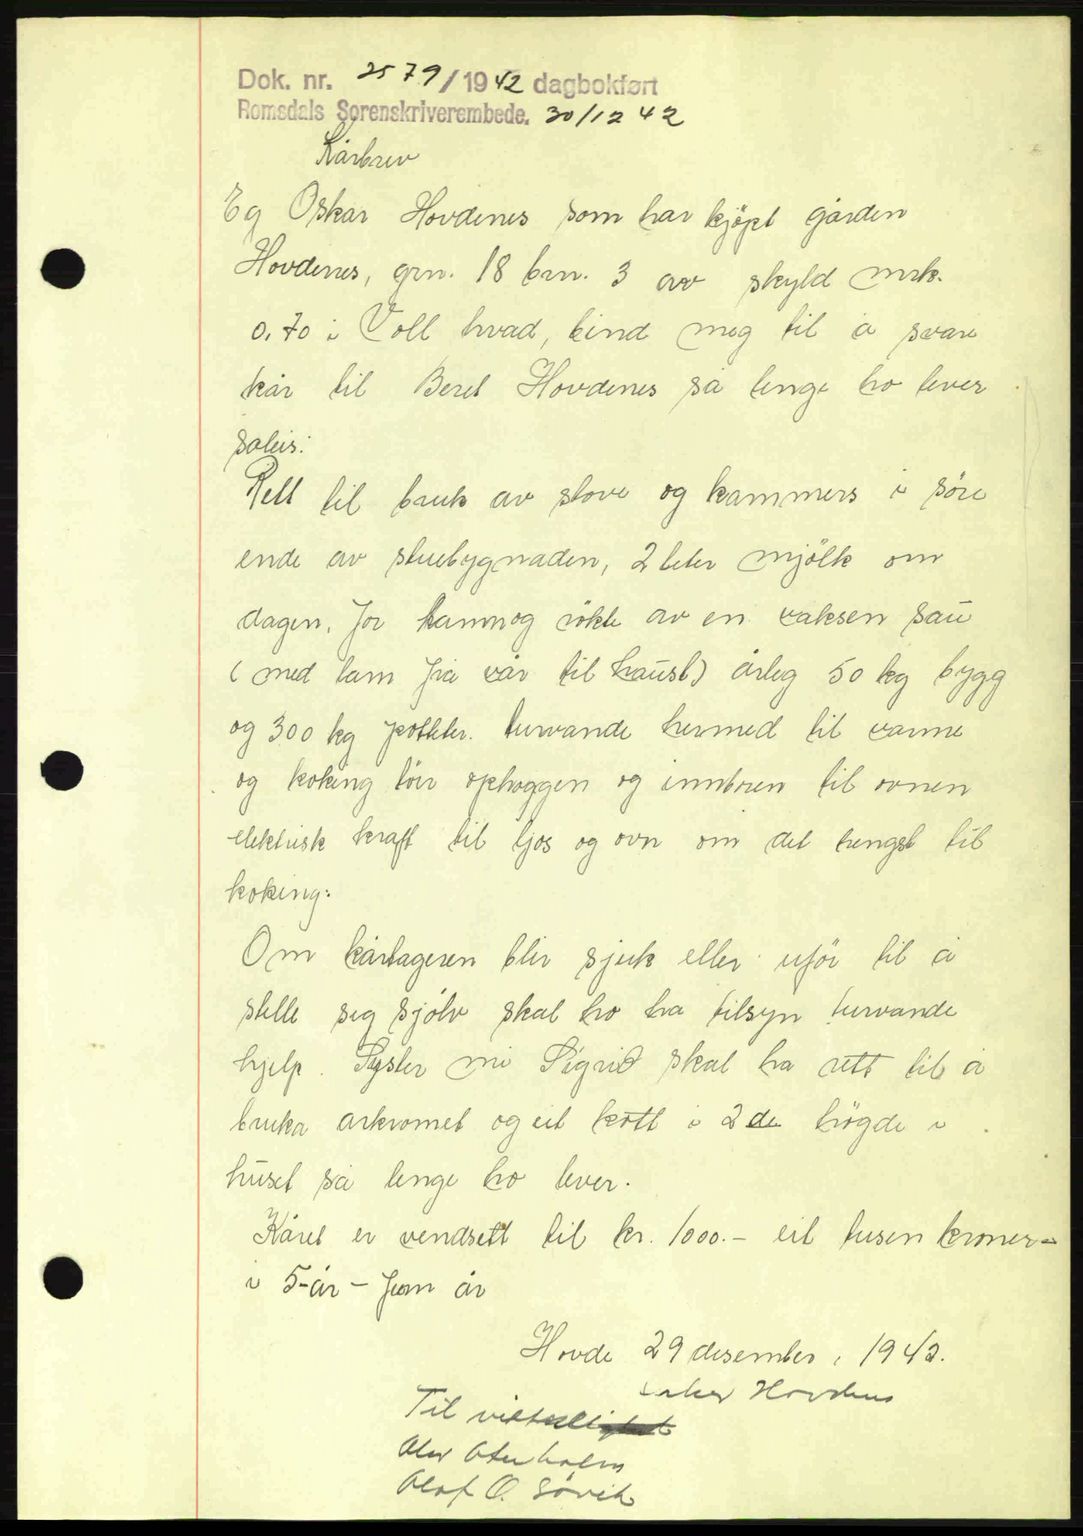 Dok. nr. 2579/1942 dagbokført
Romsdals Sorenskriverembede. 30/12 42
Kårbrev
Eg Oskar Hovdenes som har kjöpt garden
Hovdenes, grn. 18 brn. 3 av skyld mrk.
0.70 i Voll herad, bind meg til å svare
kår til Beret Hovdenes så lenge ho lever
såleis:
Rett til bruk av stove og kammers i søre
ende av stuebygnaden, 2 liter mjölk om
dagen, för hamn og røkte av en vaksen sau
(med lam frå vår til haust) årleg 50 kg bygg
og 300 kg poteter. turvande hermed til varme
og koking tørr ophoggen og innboren til ovnen
elektrisk kraft til ljos og ovn om det trengst til
koking:
Om kårtageren blir sjuk eller ufør til å
stelle seg sjølv skal ho ha tilsyn turvande
hjelp. Syster mi Sigrid skal ha rett til å
bruka arkromet og eit kott i 2de høgde i
huset så lenge ho lever.
Kåret er verdsett til kr. 1000.- eit tusen kroner-
i 5-år - fem år
Hovde 29 desember, 1942.
Oskar Hovdenes
Til vitterlighet
Olav
Olaf O. Søvik